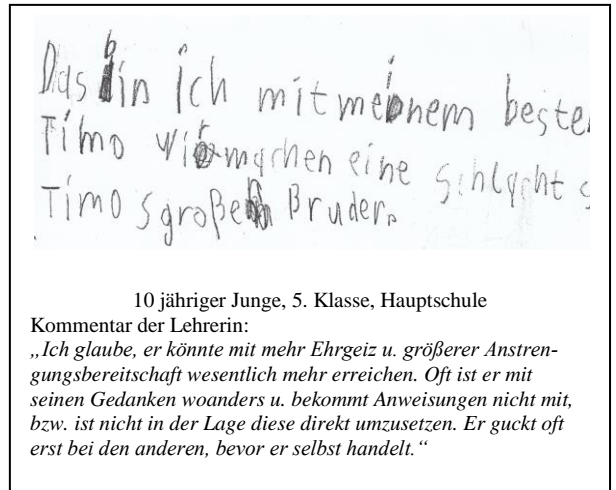 Das bin ich mit meinem beste
Timo wir machen eine schlacht g
Timo s großen Bruder.
10 jähriger Junge, 5. Klasse, Hauptschule
Kommentar der Lehrerin:
„Ich glaube, er könnte mit mehr Ehrgeiz u. größerer Anstren-
gungsbereitschaft wesentlich mehr erreichen. Oft ist er mit
seinen Gedanken woanders u. bekommt Anweisungen nicht mit,
bzw. ist nicht in der Lage diese direkt umzusetzen. Er guckt oft
erst bei den anderen, bevor er selbst handelt.“